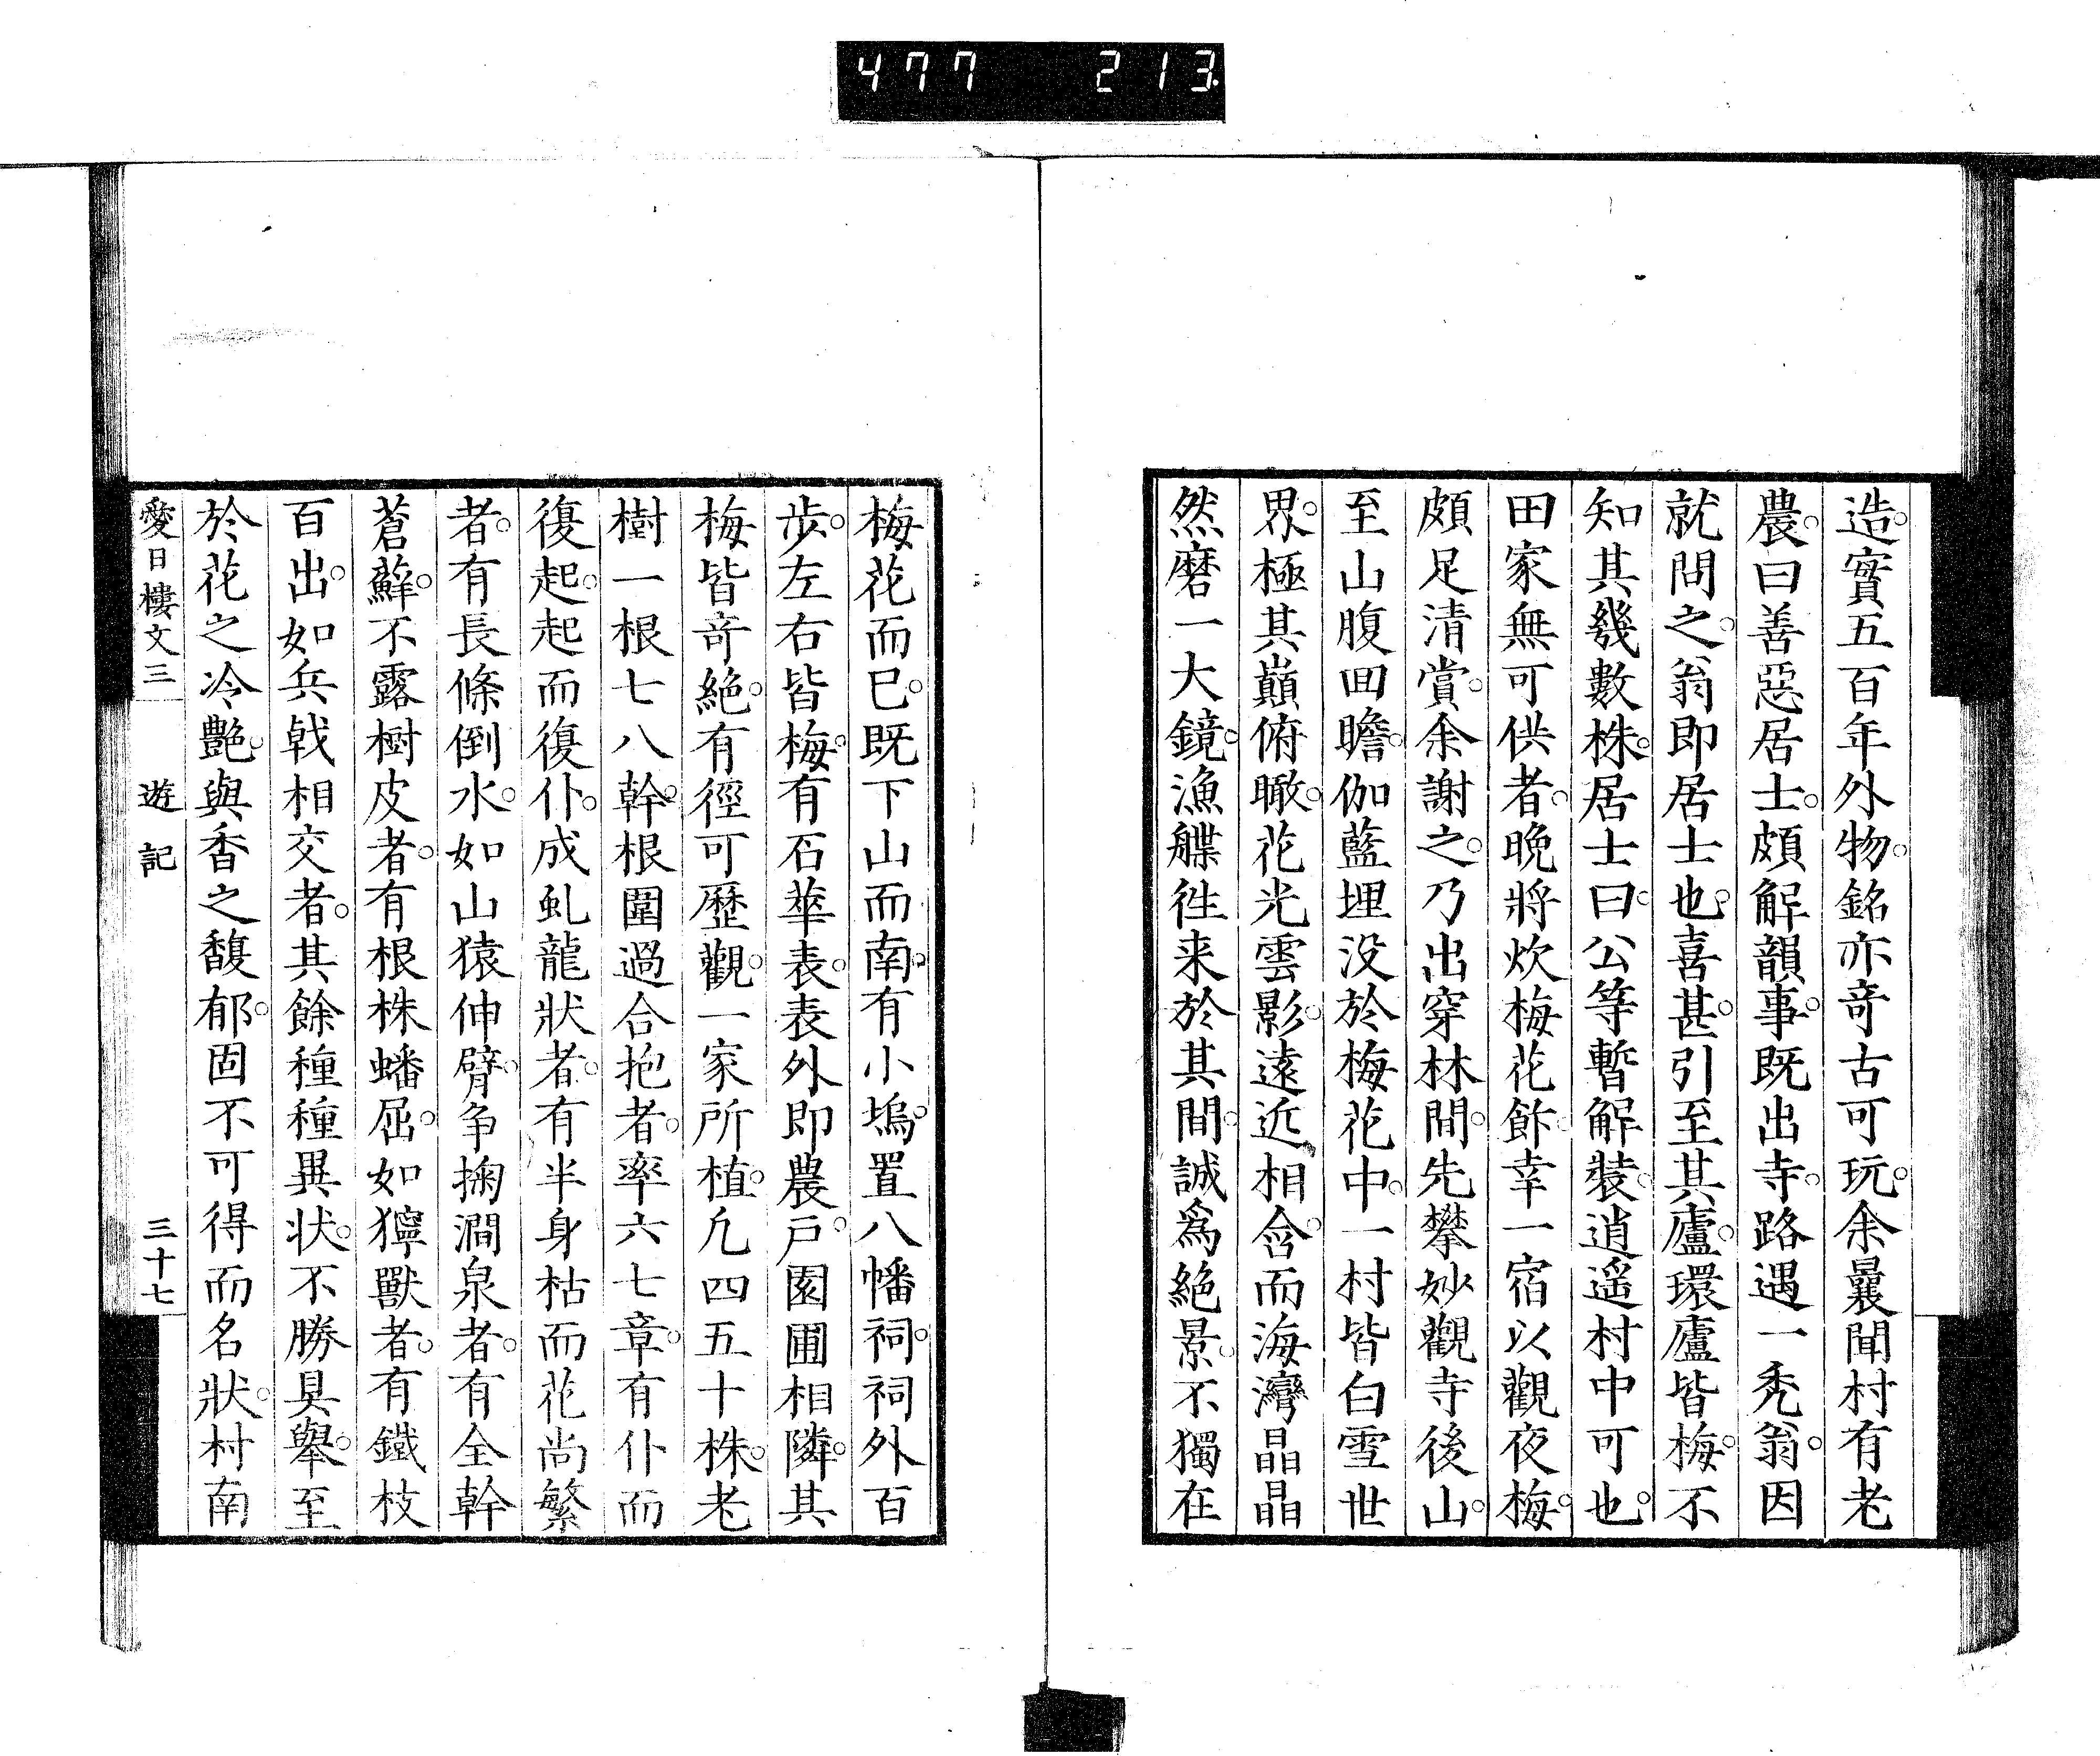 477 213
造。實五百年外物。銘亦竒古可玩。余曩聞村有老
農。曰善惡居士。頗解韻事。既出寺。路遇一禿翁。因
就問之。翁即居士也。喜甚。引至其廬。環廬皆梅。不
知其幾數株。居士曰。公等暫解裝。逍遥村中可也。
田家無可供者。晩將炊梅花飯。幸一宿以觀夜梅。
頗足清賞。余謝之。乃出穿林間。先攀妙觀寺後山。
至山腹回瞻。伽藍埋没於梅花中。一村皆白雪世
界。極其巔俯瞰。花光雲影。遠近相含。而海灣晶晶
然磨一大鏡。漁艓徃来於其間。誠爲絶景。不獨在
梅花而已。既下山而南。有小塢。置八幡祠。祠外百
歩。左右皆梅。有石華表。表外即農戸。園圃相隣。其
梅皆竒絶。有徑可歷觀。一家所植。凢四五十株。老
樹一根七八幹。根圍過合抱者。率六七章。有仆而
復起。起而復仆。成虬龍狀者。有半身枯而花尚繁
者。有長條倒水。如山猿伸臂。争掬澗泉者。有全幹
蒼蘚。不露樹皮者。有根株蟠屈。如獰獸者。有鐵枝
百出。如兵戟相交者。其餘種種異狀。不勝具舉。至
於花之冷艶。與香之馥郁。固不可得而名狀。村南
愛日樓文三 遊記 三十七